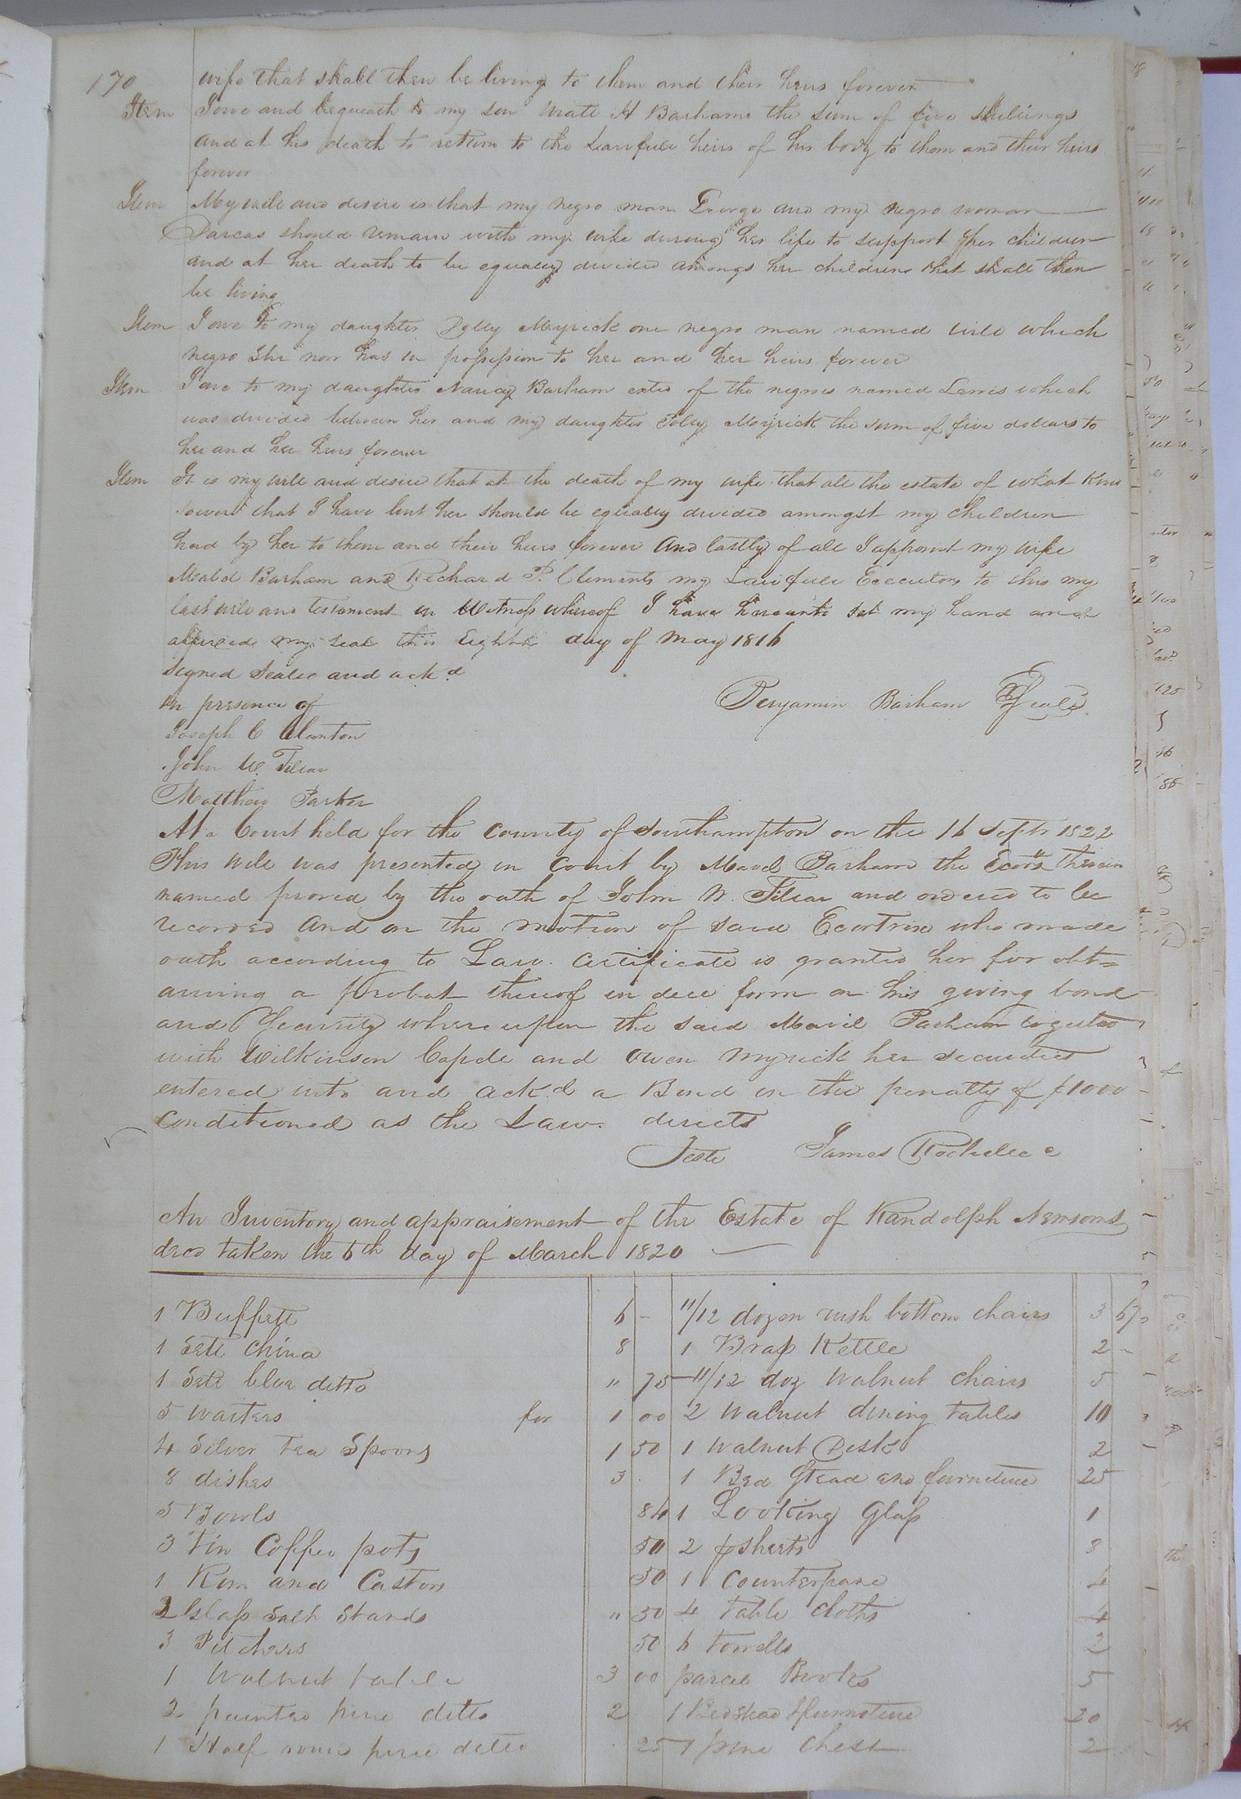 170
wife that shall then be living to them and their heirs forever
Item I give and bequeath to my son H Barham the sum of five shillings
and at his death to return to the Lawfull heirs of his body to them and their heirs
forever
Item My will and desire is that my negro man George and my negro woman
Darcas should remain with my wife during her life to support her children
and at her death to be equally divided amongs her childrens that shall then
be living
Item I give to my daughter Polly Meyrick one negro man named Will which
negro She now has in possession to her and her heirs forever
Item I give to my daughter Nancy Barham of the negroes named Lewis which
was divided between her and my daughter Polly Meyrick the sum of five dollars to
her and her heirs forever
Item It is my will and desire that at the death of my wife that all the estate of what kind
soever that I have lent her should be equally divided amongst my children
had by her to them and their heirs forever And lastly of all I appoint my wife
Barham and Richard P. Clements my Lawfull Executors to this my
last will and testament in Witness whereof I have hereunto set my hand and
affixed my seal this Eighth day of May 1816
signed Sealed and ackd
in presence of
Benjamin Barham Seal
Joseph C Clanton
John W.
Matthew Parker
At a Court held for the County of Southampton on the 16 Septr 1822
This will was presented in Court by Barham the therein
named proved by the oath of John W. and ordered to be
recorded And on the motion of said who made
oath according to Law. Certificate is granted her for obt=
aining a probat thereof in due form on his giving bond
and Security whereupon the said Barham together
with Wilkinson and Owen Myrick her securities
entered into and ackd a Bond in the penalty of $1000
Conditioned as the Law directs
Teste James Rochelle c
An Inventory and appraisement of the Estate of Randolph Newsons
decd taken the 6th day of March 1820
1 Buffett 6 – 11/12 dozen rush bottom chairs 3 67
1 Sett China 8 1 Brass Kettle 2 –
1 Sett blue ditto " 75 11/12 doz walnut chairs 5
5 waiters for 1 00 2 Walnut dining tables 10
4 Silver Tea Spoons 1 50 1 Walnut Desk 2
8 dishes 3 1 Bed Stead and furniture 25
5 Bowls 84 1 Looking Glass 1
3 Tin Coffee pots 50 2 sheets 3
1 and Castors 50 1 Counterpane 4
2 Glass Salt Stands " 50 4 table cloths 4
3 Pitchers 50 6 Towells 2
1 Walnut table 3 00 parcel Books 5
2 painted pine ditto 2 1 Bedstead & furniture 20
1 Half round pine ditto 25 1 pine Chest 2